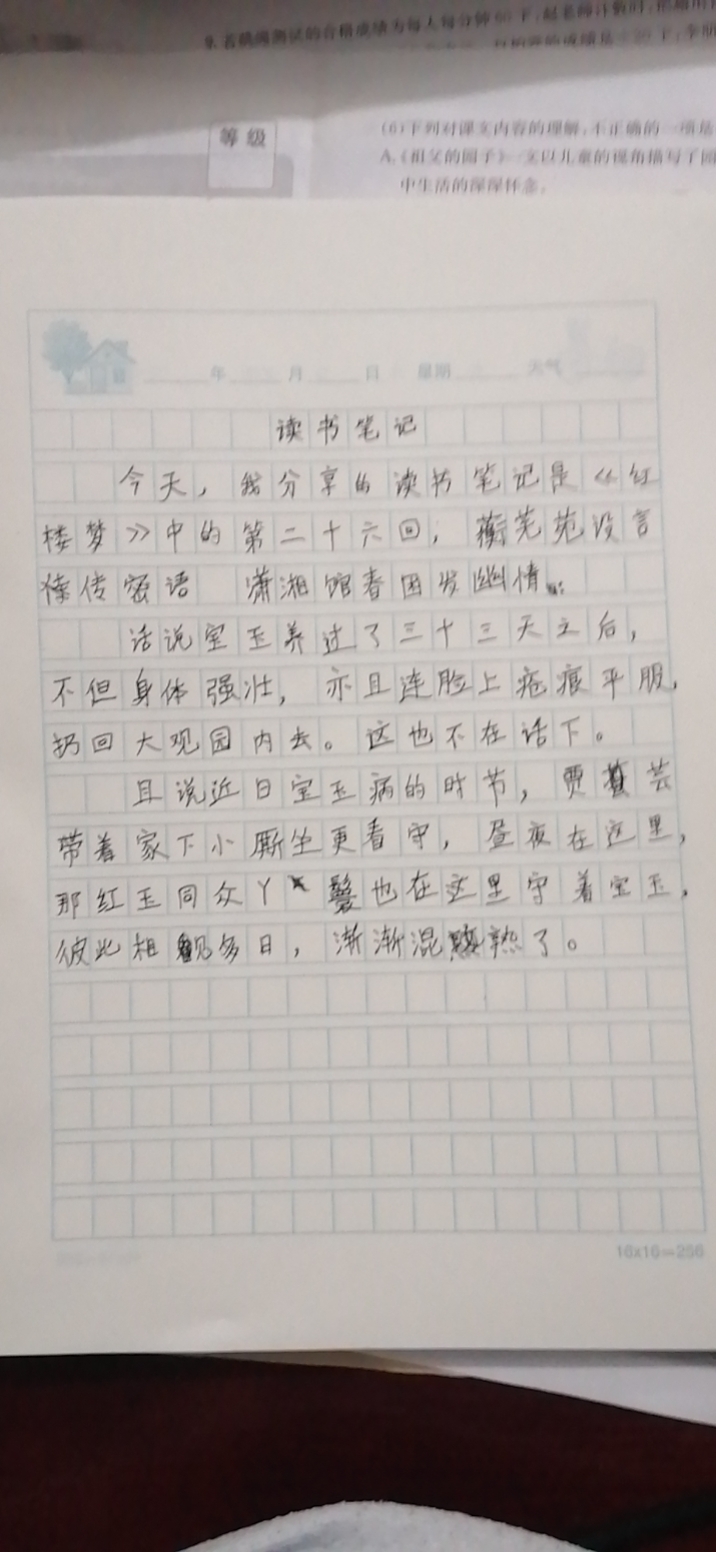 9.若跳绳测试的合格成绩为每人每分钟
等级
(6)下列对课文内容的理解,不正确的一项是
A.《祖父的园子》一文以儿童的视角描写了园
中生活的深深怀念。
年 月 日 星期 天气
读书笔记
今天，我分享的读书笔记是《红
楼梦》中的第二十六回，蘅芜苑设言
传密语 潇湘馆春困发幽情
话说宝玉养过了三十三天之后，
不但身体强壮，亦且连脸上疮痕平服，
扔回大观园内去。这也不在话下。
且说近日宝玉病的时节，贾芸
带着家下小厮坐更看守，昼夜在这里，
那红玉同众丫鬟也在这里守着宝玉，
彼此相多日，渐渐混熟了。
16x16=256